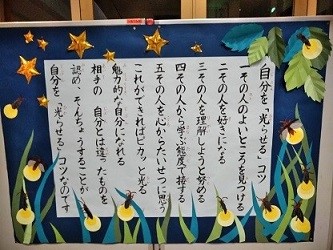 自分を「光らせる」コツ
一その人のよいところを見つける
二その人を好きになる
三その人を理解しようと努める
四その人から学ぶ態度で接する
五その人を心からたいせつに思う
これができればピカッと光る
魅力的な自分になれる
相手の自分とは違ったものを
認め、そんちょうすることが
自分を「光らせる」コツなのです